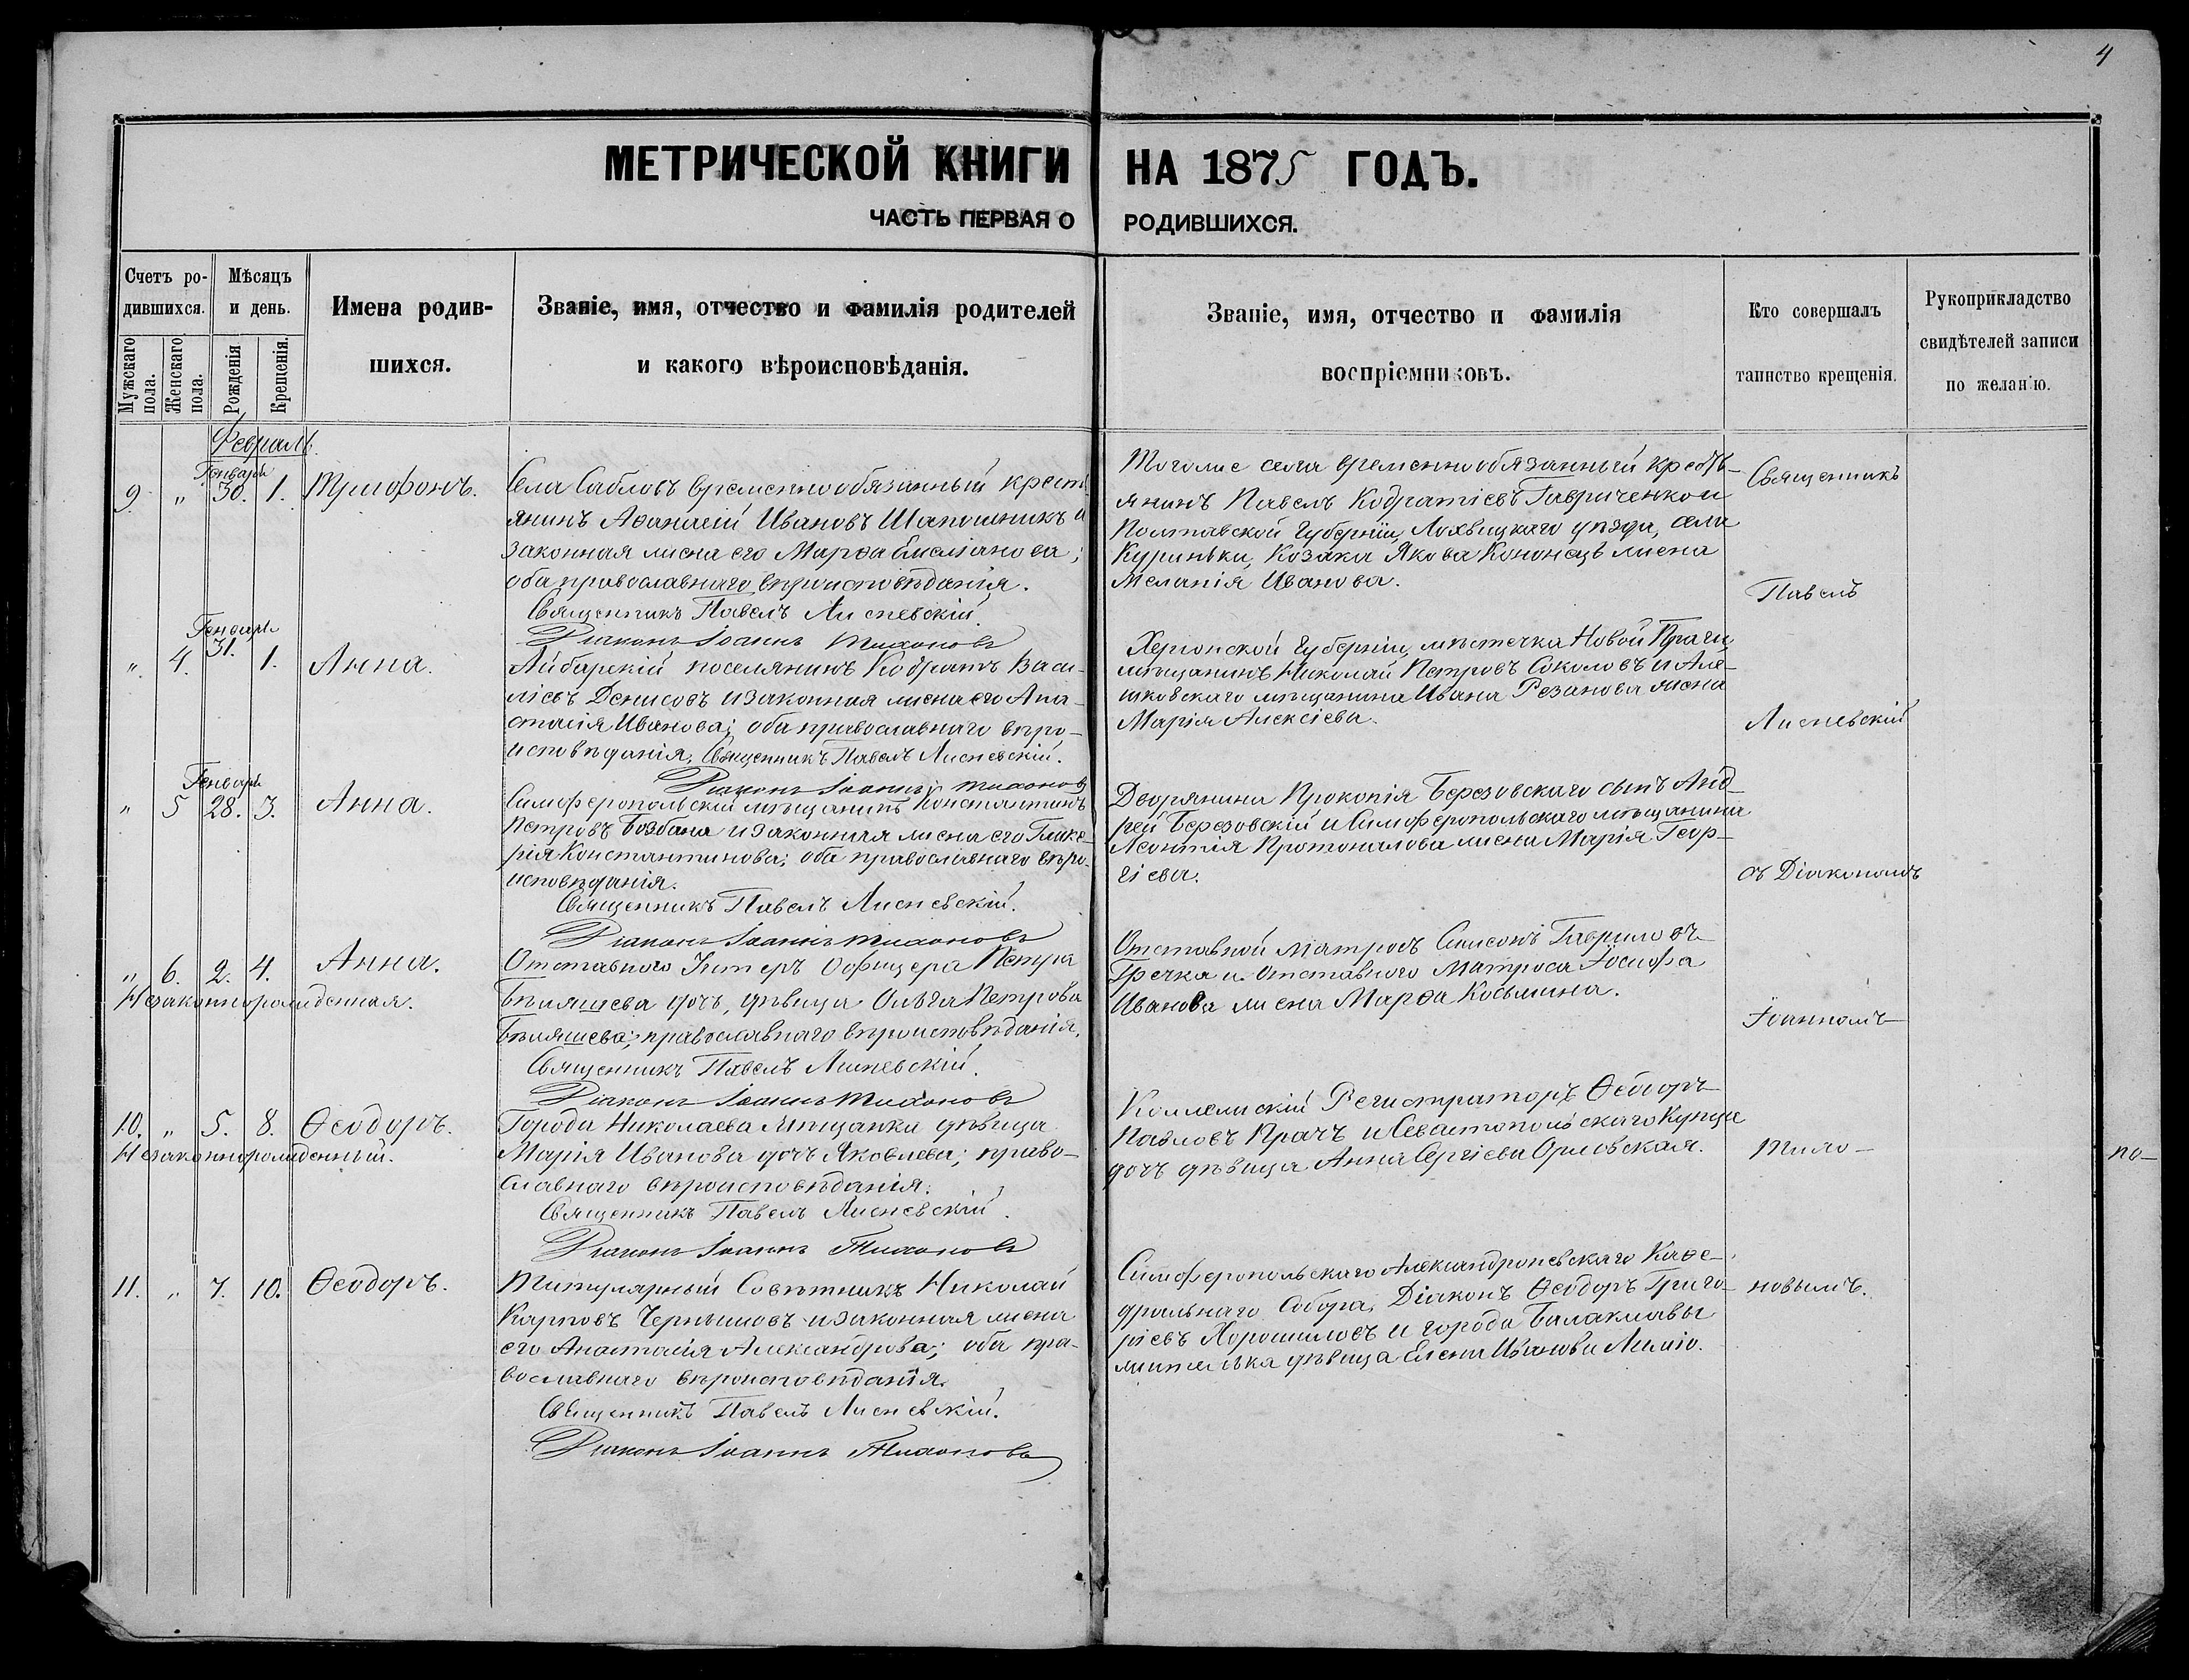 4
МЕТРИЧЕСКОЙ КНИГИ НА 1875 ГОДЪ.
ЧАСТЬ ПЕРВАЯ О РОДИВШИХСЯ.
Счетъ ро-
дившихся.
Мужскаго пола.
Женскаго пола.
Мѣсяцъ
и день.
Рожденія
Крещенія.
Имена родив-
шихся.
Званіе, имя, отчество и фамилія родителей
и какого вѣроисповѣданія.
Званіе, имя, отчество и фамилія
воспріемниковъ.
Кто совершалъ
таинство крещенія.
Рукоприкладство
свидѣтелей записи
по желанію.
Февраль
Генваря
9. " 30. 1. Трифонъ.
Села Сабловъ временнообязанный крест-
янинъ Аѳанасій Ивановъ Шапошникъ и
законная жена его Марѳа Емеліанова;
оба православнаго вѣроисповѣданія.
Священникъ Павелъ Лисневскій.
Діаконъ Іоаннъ Тихоновъ
Тогоже села временнообязанный кресть-
янинъ Павелъ Кодратіевъ Гавриченко и
Полтавской Губерніи, Лохвицкаго уѣзда, села
Куриньки, Козака Якова Кононца жена
Меланія Иванова.
Генваря
" 4. 31. 1. Анна.
Айбарскій поселянинъ Кодратъ Васи-
ліевъ Денисовъ и законная жена его Ана-
стасія Иванова; оба православнаго вѣро-
исповѣданія. Священникъ Павелъ Лисневскій.
Діаконъ Іоаннъ Тихоновъ
Херсонской Губерніи, мѣстечка Новой Праги,
мѣщанинъ Николай Петровъ Соколовъ и Але-
шковскаго мѣщанина Ивана Резанова жена
Марія Алексіева.
Генваря
" 5 28. 3. Анна.
Симферопольскій мѣщанинъ Константинъ
Петровъ Бозбана и законная жена его Глике-
рія Константинова; оба православнаго вѣро-
исповѣданія.
Священникъ Павелъ Лисневскій.
Діаконъ Іоаннъ Тихоновъ
Дворянина Прокопія Березовскаго сынъ Анд-
рей Березовскій и Симферопольскаго мѣщанина
Леонтія Протопалова жена Марія Геор-
гіева.
" 6. 2. 4. Анна.
Незаконнорожденная.
Отставного Унтеръ Оофицера Петра
Бѣляшева дочь, дѣвица Ольга Петрова
Бѣляшева; православнаго вѣроисповѣданія.
Священникъ Павелъ Лисневскій.
Діаконъ Іоаннъ Тихоновъ
Отставной матросъ Симеонъ Гавриловъ
Гречка и отставного Матроса Іосифа
Иванова жена Марѳа Косьмина.
10. " 5. 8. Ѳеодоръ.
Незаконнорожденный.
Города Николаева Мѣщанка дѣвица
Марія Иванова дочь Яковлева; право-
славнаго вѣроисповѣданія.
Священникъ Павелъ Лисневскій.
Діаконъ Іоаннъ Тихоновъ
Коллежскій Регистраторъ Ѳеодоръ
Павловъ Прачъ и Севастопольскаго Купца
дочь дѣвица Анна Сергіева Орловская.
11. " 7. 10. Ѳеодоръ.
Титулярный Совѣтникъ Николай
Карповъ Чернышовъ и законная жена
его Анастасія Александрова; оба пра-
вославнаго вѣроисповѣданія.
Священникъ Павелъ Лисневскій.
Діаконъ Іоаннъ Тихоновъ
Симферопольскаго Александроневскаго Каѳе-
дральнаго Собора, Діаконъ Ѳеодоръ Григо-
ріевъ Хорошиловъ и города Балаклавы
жителька дѣвица Елена Иванова
Священникъ
Павелъ
Лисневскій
съ Діакономъ
Іоанномъ
Тихо-
новымъ.
по-